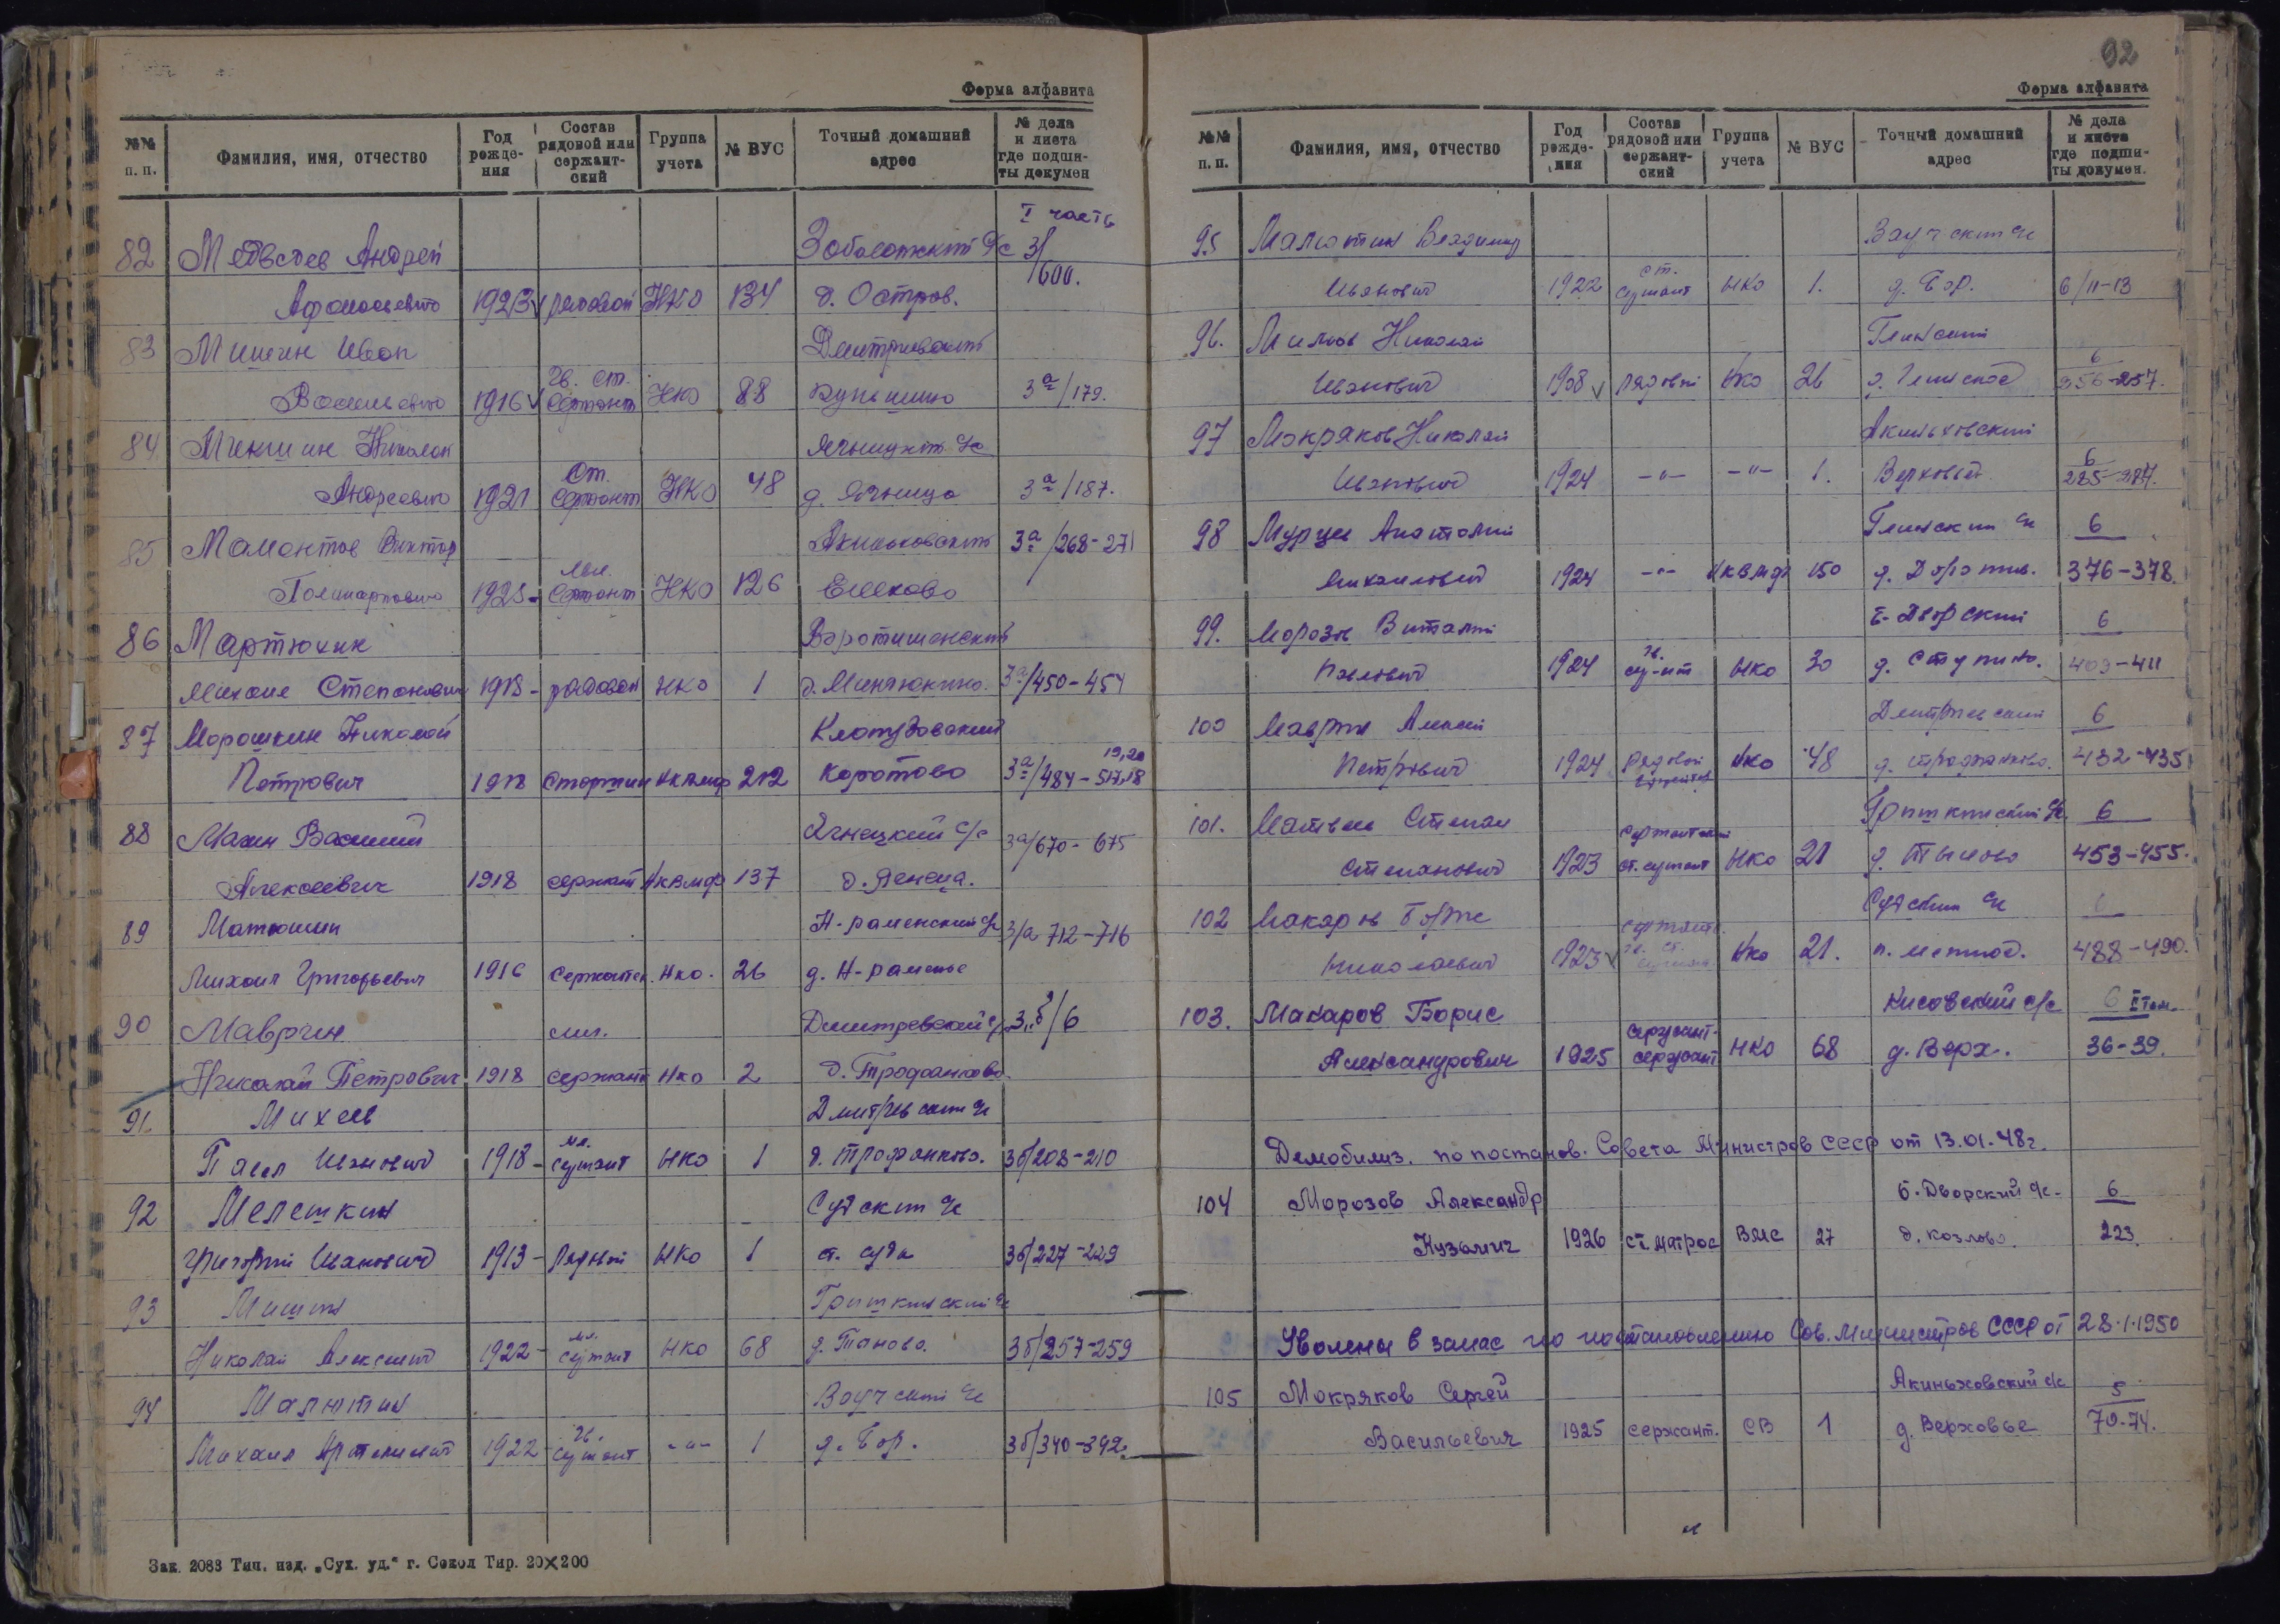 Форма алфавита
№№ п. п. Фамилия, имя, отчество Год рождения Состав рядовой или сержантский Группа учета № ВУС Точный домашний адрес № дела и листа где подшиты докумен
I часть
82 Медведев Андрей Заболотский с/с 3/600.
Афонасьевич 1923 рядовой НКО 134 д. Остров.
83 Мишин Иван Дмитриевский
Васильевич 1916 Гв. ст. Сержант НКО 88 3а/179.
84 Меншин Николай Ягницкий с/с
Андреевич 1921 Ст. Сержант НКО 48 д. Ягница 3а/187.
85 Мамонтов Виктор Акиньховский 3а/268-271
Поликарпович 1925 Мл. Сержант НКО 126
86 Мартюхин Воротишенский
Михаил Степанович 1918 рядовой НКО 1 д. Минтюкино. 3а/450-454
87 Морошкин Николай
Петрович 1918 НКВМФ 212 Коротово 3а/484-517,18 19,20
88 Махин Василий Ягнецкий с/с 3а/670-675
Алексеевич 1918 сержант НКВМФ 137 д. Ягнеца.
89 Матюшин Н-раменский с/с 3/а 712-716
Михаил Григорьевич 1916 НКО. 26 д. Н-раменье
90 Маврин мл. Дмитревский с/с 3"б/6
Николай Петрович 1918 сержант НКО 2 д. Трофанково
91. Михеев Дмитриевский с/с
Павел Иванович 1918 мл. сержант НКО 1 д. Трофанково. 3б/208-210
92 Мелешкин Судский с/с
Григорий Иванович 1913 Рядовой НКО 1 ст. Суда 3б/227-229
93 Мишин Гришкинский с/с
Николай Алексеевич 1922 мл. сержант НКО 68 д. Таново. 3б/257-259
94 Малютин Ваучский с/с
Михаил 1922 гв. сержант -"- 1 д. Бор. 3б/340-342.
Зак. 2083 Тип. изд. „Сух. уд.“ г. Сокол Тир. 20×200
92
Форма алфавита
№№ п. п. Фамилия, имя, отчество Год рождения Состав рядовой или сержантский Группа учета № ВУС Точный домашний адрес № дела и листа где подшиты докумен.
95 Малютин Владимир Ваучский с/с
Иванович 1922 ст. сержант НКО 1. д. Бор. 6/11-13
96. Милков Николай Глинский
Иванович 1908 рядовой НКО 26 6 256-257.
97 Мокряков Николай Акиньховский
Иванович 1924 -"- -"- 1. Верховье 6 285-287.
98 Мурцев Анатолий Глинский с/с 6
Михайлович 1924 -"- НКВМФ 150 376-378.
99. Морозов Виталий Б-Дворский 6
Павлович 1924 гв. сер-нт НКО 30 д. Ступино. 409-411
100 Маврин Алексей Дмитриевский 6
Петрович 1924 Рядовой НКО 48 д. Трофанково. 432-435
101. Матвеев Степан Гришкинский с/с 6
Степанович 1923 ст. сержант НКО 21 453-455.
102 Макаров Борис Судский с/с 6
Николаевич 1923 гв. ст. сержант НКО 21. 488-490.
103. Макаров Борис Кисовский с/с 6 II том.
Александрович 1925 сержант. сержант НКО 68 д. Верх. 36-39.
Демобилиз. по постанов. Совета Министров СССР от 13.01.48г.
104 Морозов Александр Б. Дворский с/с. 6
Кузьмич 1926 ст. матрос ВМС 27 д. Козлово. 223.
Уволены в запас по постановлению Сов. Министров СССР от 28.1.1950
105 Мокряков Сергей Акиньховский с/с 5
Васильевич 1925 сержант. СВ 1 д. Верховье 70-74.